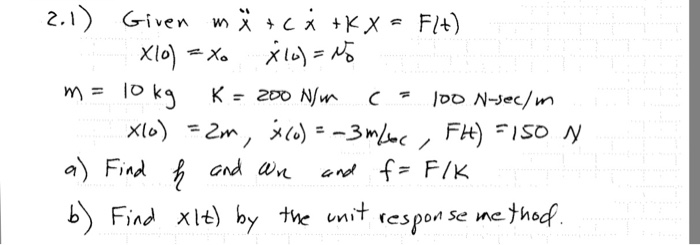 2.1) Given m ẍ + c ẋ + K X = F(t)
X(0) = X₀ ẋ(0) = v₀
m = 10 kg K = 200 N/m C = 100 N-sec/m
X(0) = 2m, ẋ(0) = -3 m/sec, F(t) = 150 N
a) Find and ωn and f = F/K
b) Find x(t) by the unit response method.